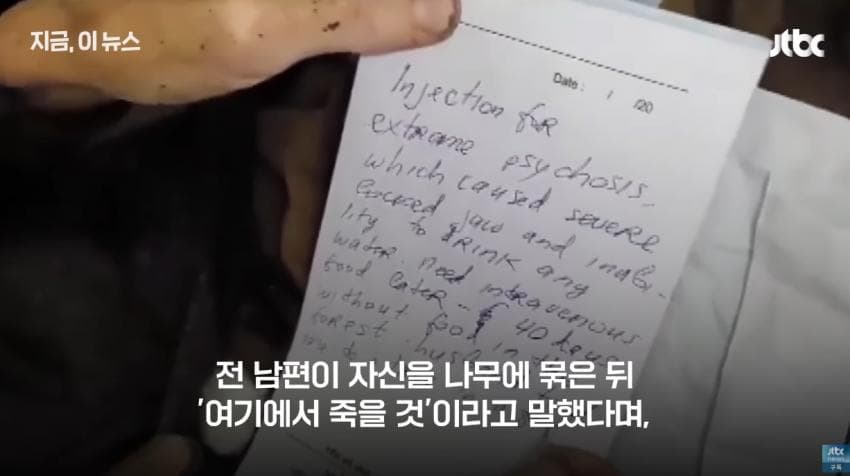 지금, 이 뉴스
jtbc
Date : / /20
Injection for
extreme psychosis,
which caused severe
locked jaw and inabi-
lity to drink any
water. need intravenous
food later..
40 hours
without food in the
forest. husb
전 남편이 자신을 나무에 묶은 뒤
'여기에서 죽을 것'이라고 말했다며,
jtbc
구독